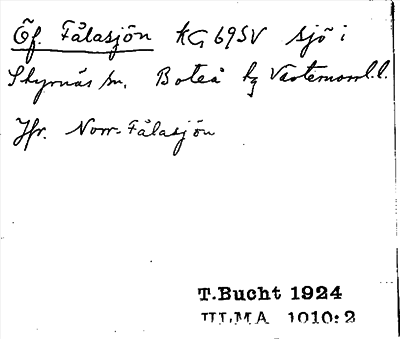 Öf. Fålasjön KG 69SV sjö i
Styrnäs sn. Boteå hg Västernorrl.l.
Jfr. Norr-Fålasjön
T.Bucht 1924
ULMA 1010:2